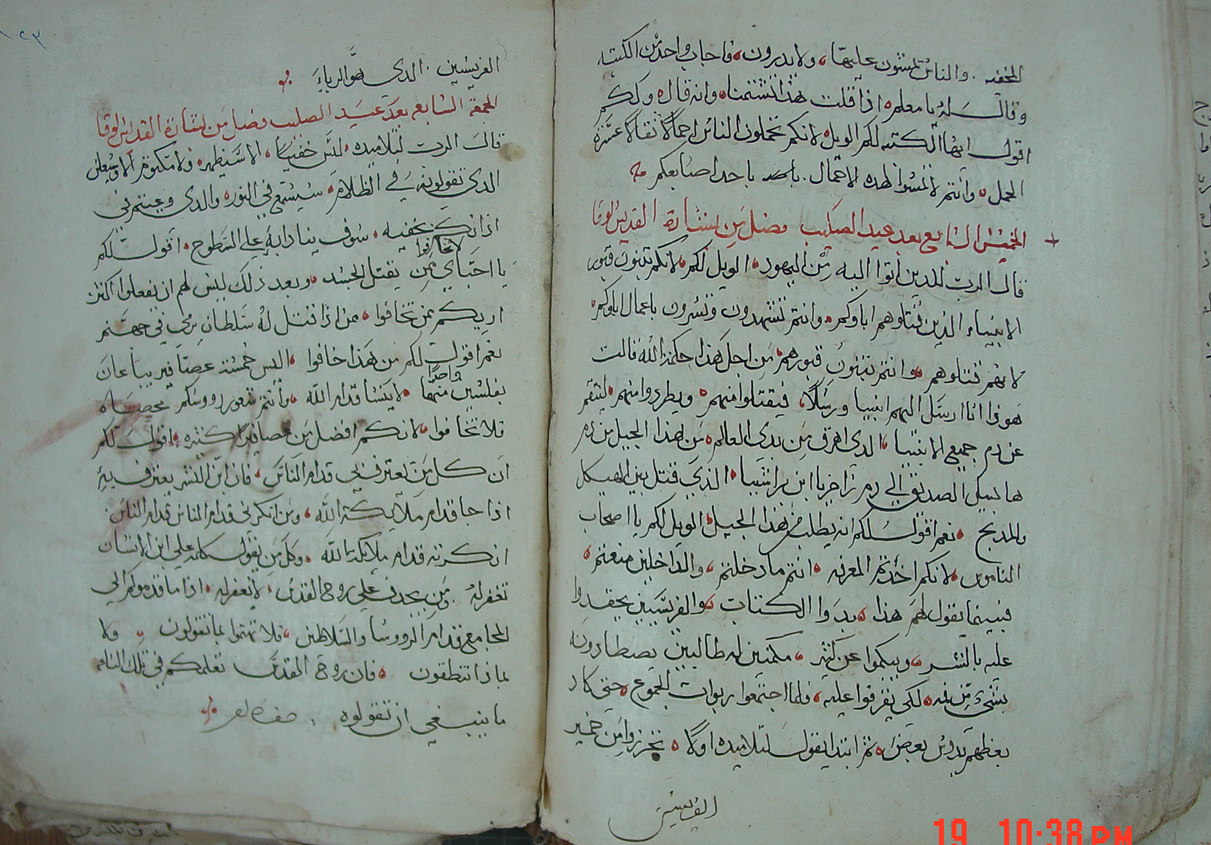 المخفيه. والناس يمشون عليها، ولا يدرون، فاجاب واحد من الكتبه
وقال له يا معلم، اذا قلت هذا تشتمنا، وانه قال ولكم
اقول ايها الكتبه لكم الويل، لانكم تحملون الناس احمالا ثقالا عسره
الحمل، وانتم لا تمسوا لهذه الاعمال. باحدا صابعكم
الخميس السابع بعد عيد الصليب فصل من بشارة القديس لوقا
قال الرب للدين اتوا اليه من اليهود، الويل لكم، لانكم تبنون قبور
الانبياء الذين قتلوهم اباوكم، وانتم تشهدون وتسرون باعمال اباوكم،
لانهم قتلوهم، وانتم تبنون قبورهم، من اجل هذا حكمة الله قالت
هوذا انا ارسل اليهم انبيا ورسلا، فيقتلوا منهم، ويطردوا منهم، لينتقم
عن دم جميع الانبيا، الدي اهرق من بدي العالم، من هذا الجيل من دم
هابيل الصديق الي دم زاخريا ابن براشيا، الذي قتل بين الهيكل
والمدبح، نعم اقول لكم انه يطلب من هذا الجيل، الويل لكم يا اصحاب
الناموس، لانكم اخدتم المعرفه، انتم ما دخلتم، والداخلين منعتم،
فبينما يقول لهم هذا، بدوا الكتاب، والفريسيين يحقدوا
عليه بالشر، ويكلموا عن كثير، مكمنين له طالبين يصطادونه
بشيء من فيه، لكي يقرفوا عليه، فلما اجتمعوا ربوات الجموع، حتي كاد
بعظهم يدوس بعض، ثم ابتدا يقول لتلاميده اولا، تحرزوا من خمير
الفريسيين
١٢٣
الفريسيين. الدي هو الرياء
الجمعة السابع بعد عيد الصليب فصل من بشارة القديس لوقا
قال الرب لتلاميده، ليس خفيا، الا سيظهر، ولا مكتوم الا وسيعلن
الدي تقولونه في الظلام، سيسمع في النور، والدي وعيتم في
اذانكم بخفيه، سوف ينادا به علي السطوح، اقول لكم
يا احباي لا تخافوا من يقتل الجسد، وبعد ذلك ليس لهم ان يفعلوا اكثر
اريكم من تخافوا، من اذا قتل له سلطان يرمي في جهنم
نعم اقول لكم من هذا خافوا، اليس خمسة عصافير يباعان
بفلسين واحدا منها، لا ينسا قدام الله، وانتم شعور رووسكم محصاه
فلا تخافوا، لانكم افضل من عصافير كثيره، اقول لكم
ان كل من يعترف بي قدام الناس، فان ابن البشر يعترف به
اذا جا قدام ملايكة الله، ومن انكرني قدام الناس قدام الناس
انكرته قدام ملايكة الله، وكل من يقول كلمه علي ابن الانسان
تغفر له، ومن يجدف علي روح القدس، لا يغفر له، اذا ما قدموكم الي
المجامع قدام الرووسا والسلاطين، فلا تهتموا بما تقولون، ولا
بماذا تنطقون، فان روح القدس تعلمكم في تلك الساعه
ما ينبغي ان تقولوه.
19 10:38 PM